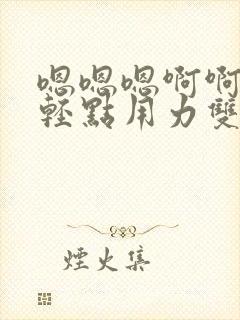 嗯嗯嗯啊啊
輕點用力雙
煙火集